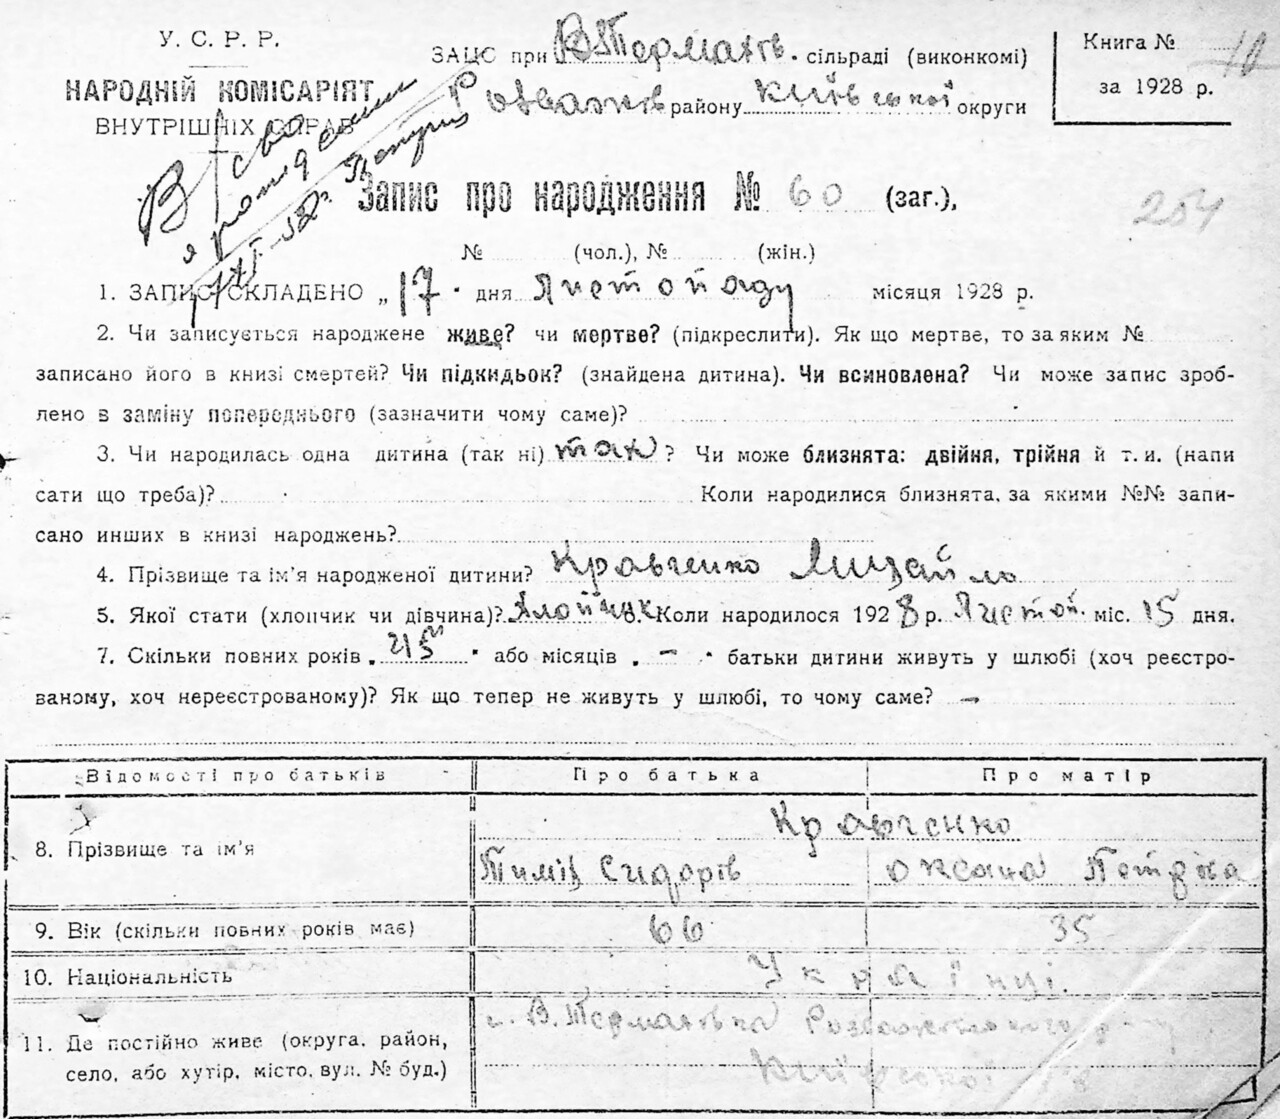 У. С. Р. Р.
НАРОДНІЙ КОМІСАРІЯТ
ВНУТРІШНІХ СПРАВ
ЗАЦС при В Термахів. сільраді (виконкомі)
Розважів району Київської округи
Книга № 10
за 1928 р.
254
Запис про народження № 60 (заг.),
№ (чол.), № (жін.)
1. ЗАПИС СКЛАДЕНО „17" дня Листопаду місяця 1928 р.
2. Чи записується народжене живе? чи мертве? (підкреслити). Як що мертве, то за яким №
записано його в книзі смертей? Чи підкидьок? (знайдена дитина). Чи всиновлена? Чи може запис зроб-
лено в заміну попереднього (зазначити чому саме)?
3. Чи народилась одна дитина (так ні) так? Чи може близнята: двійня, трійня й т. и. (напи
сати що треба)? Коли народилися близнята, за якими №№ запи-
сано инших в книзі народжень?
4. Прізвище та ім'я народженої дитини? Кравченко Михайло
5. Якої стати (хлопчик чи дівчина)? Хлопчик 6. Коли народилося 1928 р. Листоп. міс. 15 дня.
7. Скільки повних років або місяців „ – " батьки дитини живуть у шлюбі (хоч реєстро-
ваному, хоч нереєстрованому)? Як що тепер не живуть у шлюбі, то чому саме? —
Відомості про батьків Про батька Про матір
Кравченко
8. Прізвище та ім'я Тиміш Сидорів Оксана Петрівна
9. Вік (скільки повних років має) 66 35
10. Національність Українці.
11. Де постійно живе (округа, район,
село, або хутір, місто, вул. № буд.)
с. В. Термахівка Розважівського р-ну
Київської